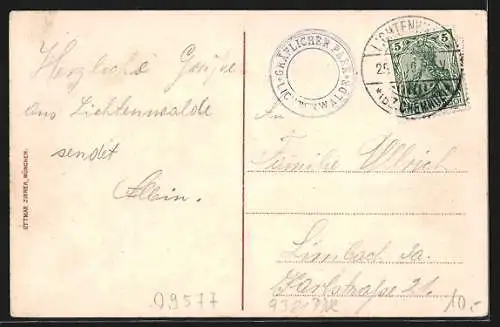 Herzliche Grüße
aus Lichtenwalde
sendet
OTTMAR ZIEHER, MÜNCHEN.
GRÄFLICHER
LICHTENWALDE
LICHTENWALDE
25
*(BZ. CHEMNITZ)
5 5
An
Familie Ullrich
Limbach Sa.
Karlstraße 21.
09577
10.-